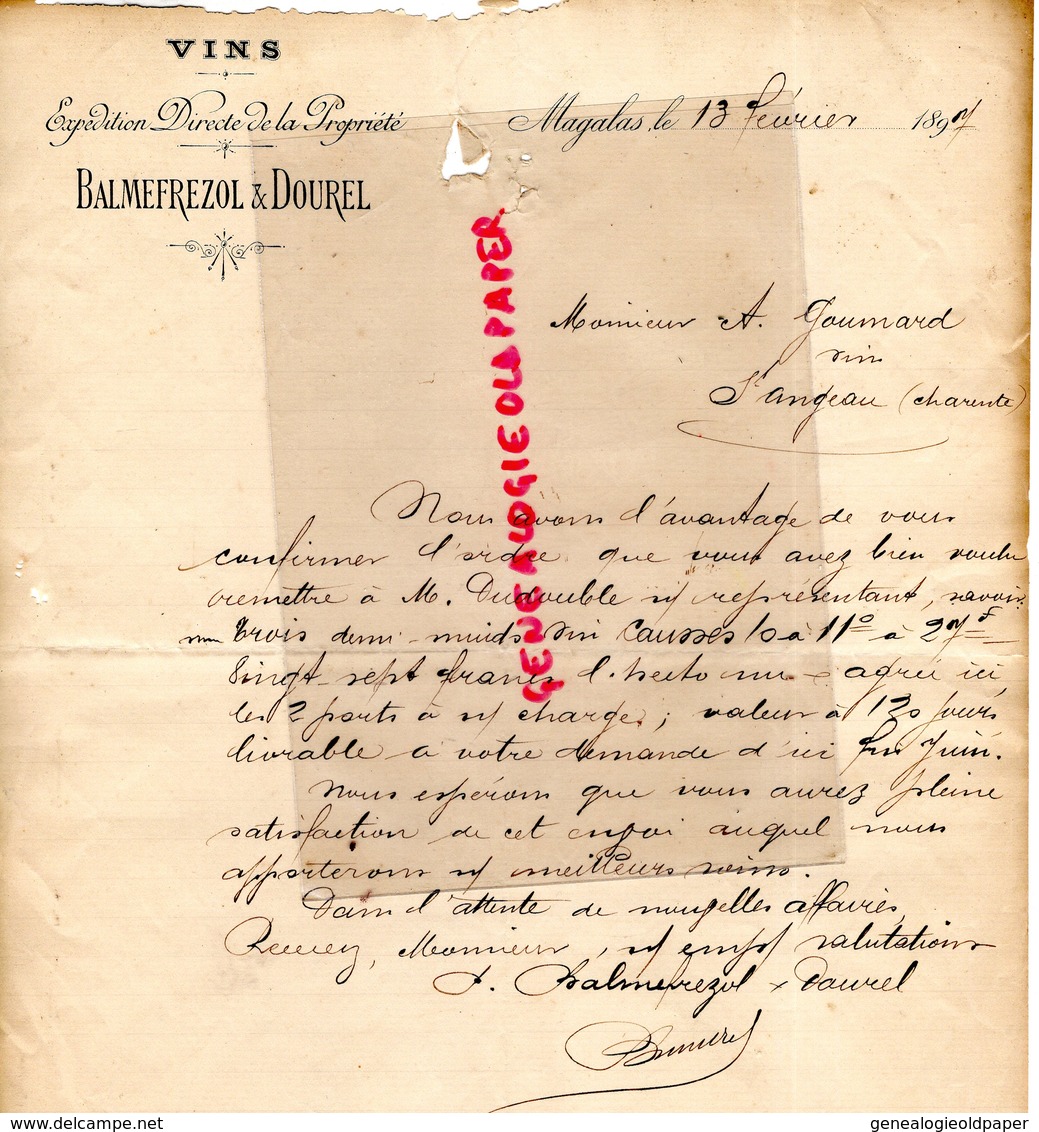 VINS
Expédition Directe de la Propriété
BALMEFREZOL & DOUREL
Magalas, le 13 février 1897
GENEALOGIE OLD PAPER
Monsieur A. Goumard
vin
St angeau (charente)
Nous avons l'avantage de vous
confirmer l'ordre que vous avez bien voulu
remettre à M. Dudouble n/ représentant, savoir:
Trois demi-muids vin Causses 10 à 11° à 27f
Vingt-sept francs l'hecto nu agréé ici,
les 2 ports à n/ charge; valeur à 120 jours
livrable à votre demande d'ici fin Juin.
Nous espérons que vous aurez pleine
satisfaction de cet envoi auquel nous
apporterons n/ meilleurs soins.
Dans l'attente de nouvelles affaires,
Recevez, Monsieur, n/ emp/ salutations
Balmefrezol & Dourel
delcampe.net
genealogieoldpaper